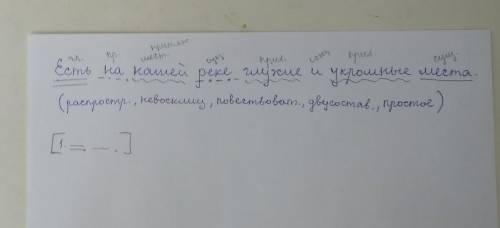 гл. пр. притяж. мест. сущ. прил. союз прил. сущ.
Есть на нашей реке глухие и укромные места.
(распростр., невосклиц., повествоват., двусостав., простое)
[ = — . ]